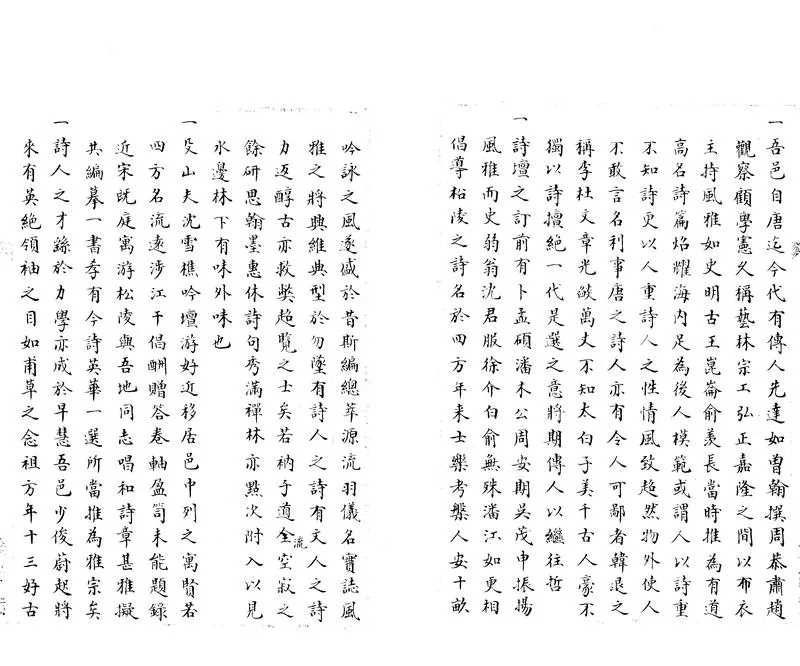 一吾邑自唐迄今代有傳人先達如曹翰撰周恭肅趙
觀察顧學憲久稱藝林宗工弘正嘉隆之間以布衣
主持風雅如史明古王崑崙俞羨長當時推為有道
高名詩篇焰耀海内足為後人模範或謂人以詩重
不知詩更以人重詩人之性情風致超然物外使人
不敢言名利事唐之詩人亦有令人可鄙者韓退之
稱李杜文章光燄萬丈不知太白子美千古人豪不
獨以詩擅絕一代是選之意將期傳人以繼往哲
一詩壇之訂前有卜孟碩潘木公周安期吳茂申振揚
風雅而史弱翁沈君服徐介白俞無殊潘江如更相
倡導松陵之詩名於四方年来士樂考槃人安十畝
吟詠之風遂盛於昔斯編總萃源流羽儀名實誌風
雅之將興維典型於勿墜有詩人之詩有文人之詩
力返醇古亦救獘超覽之士矣若衲子遁全空寂之流
餘研思翰墨惠休詩句秀滿禪林亦點次附入以見
水邊林下有味外味也
一殳山夫沈雪樵吟壇游好近移居邑中列之寓賢若
四方名流逺涉江干倡酬贈答卷軸盈笥未能題録
近宋既庭寓游松陵與吾地同志唱和詩章甚雅擬
共編摹一書孝有今詩英華一選所當推為雅宗矣
一詩人之才錄於力學亦成於早慧吾邑少俊蔚起將
來有英絶領袖之目如甫草之念祖方年十三好古